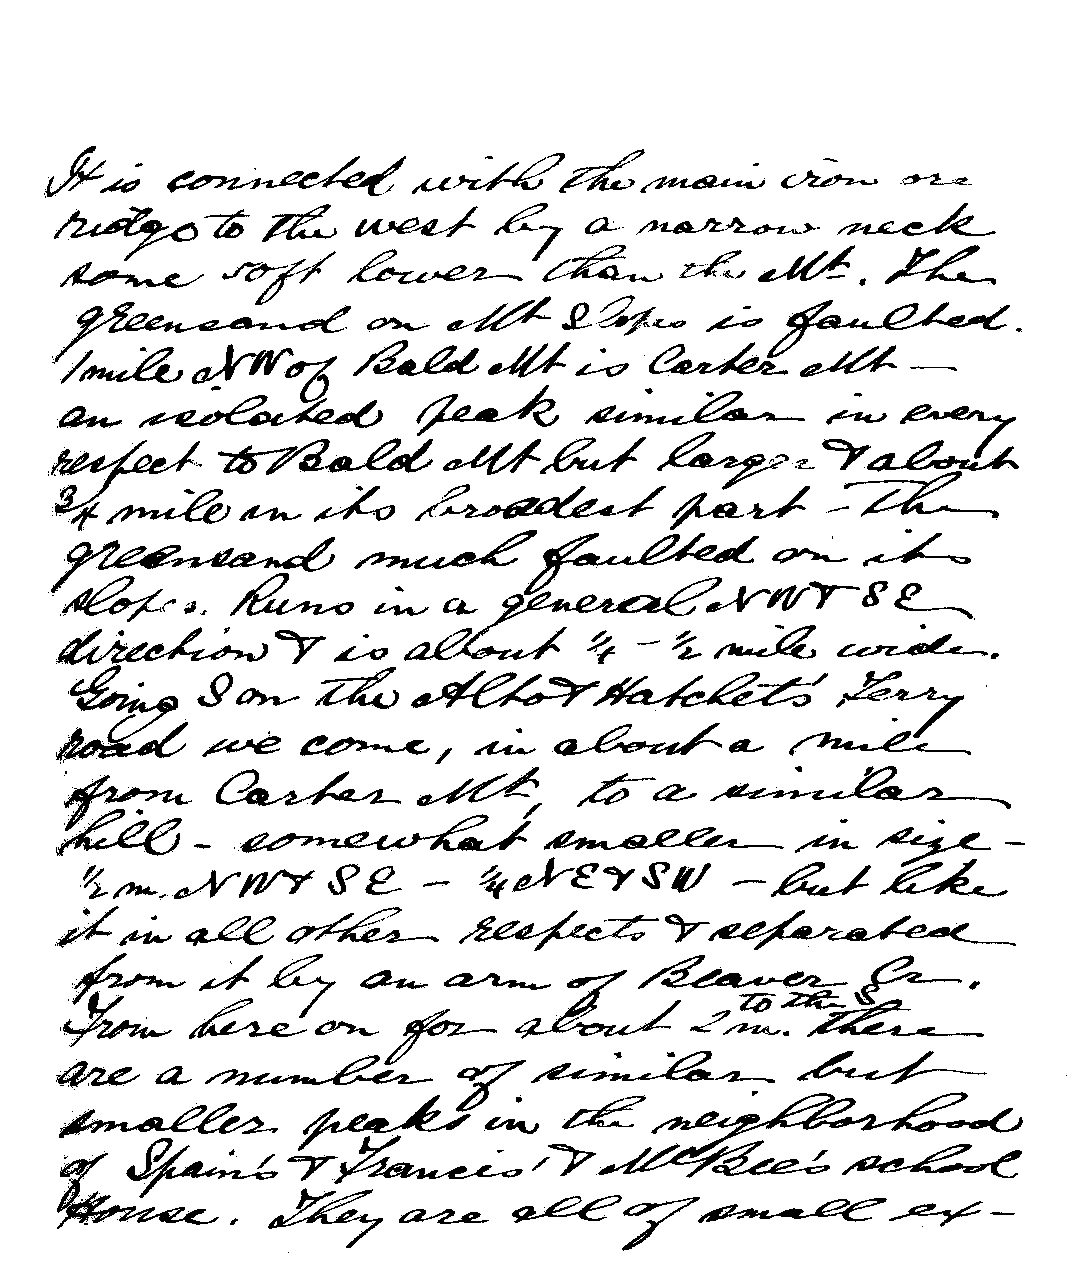 It is connected with the main iron ore
ridge to the west by a narrow neck
some 50ft lower than the Mt. The
greensand on Mt Slopes is faulted.
1 mile NW of Bald Mt is Carter Mt —
an isolated peak similar in every
respect to Bald Mt but larger & about
3/4 mile in its broadest part - The
greensand much faulted on its
slopes. Runs in a general NW & SE
direction & is about 1/4 - 1/2 mile wide.
Going S on the Alto & Hatchet's Ferry
road we come, in about a mile
from Carter Mt, to a similar
hill - somewhat smaller in size -
1/2 m. NW & SE - 1/4 NE & SW - but like
it in all other respects & separated
from it by an arm of Beaver Cr.
From here on for about 2 m. to the S there
are a number of similar but
smaller peaks in the neighborhood
of Spain's & Francis' & McBee's school
House. They are all of small ex-